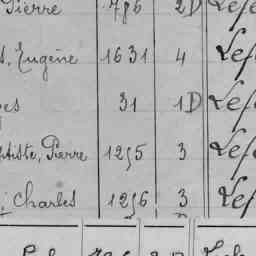 Pierre 786 2D Lefe
, Eugène 1631 4 Lefe
es 31 1D Lefe
ptiste, Pierre 1255 3 Lefe
, Charles 1256 3 Lef